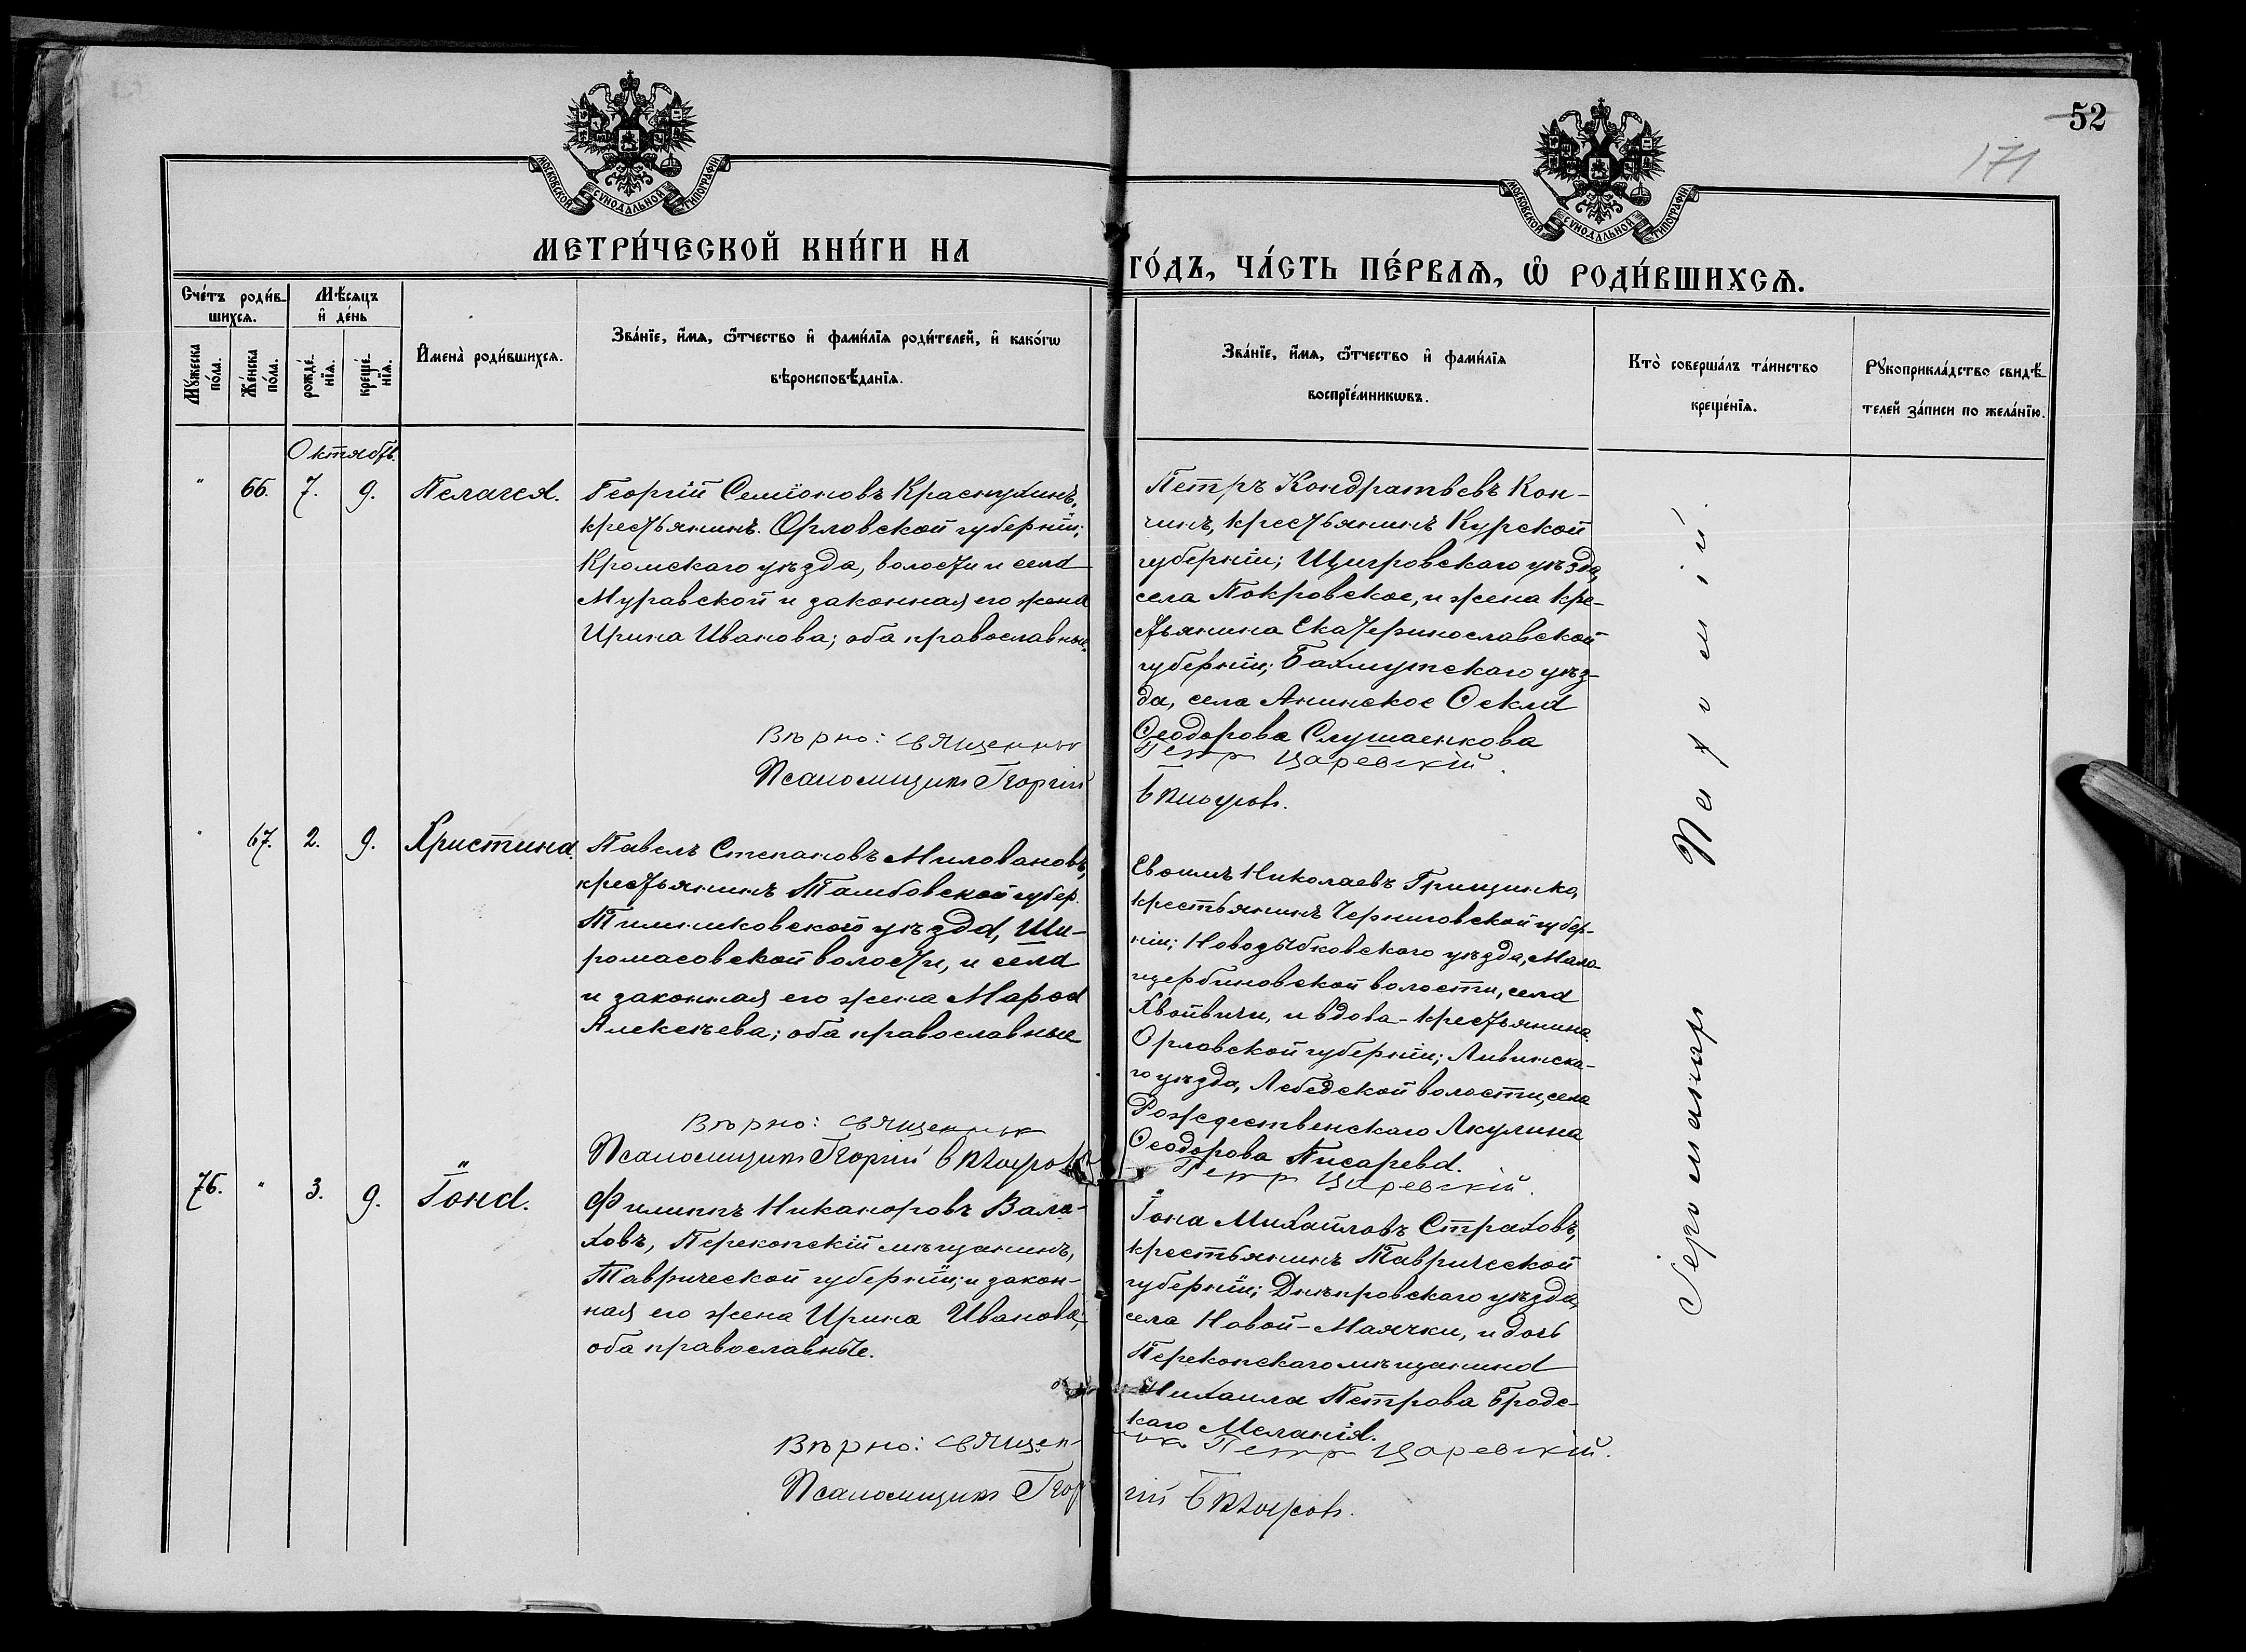 52
171
МОСКОВСКОЙ СѴНОДАЛЬНОЙ ТИПОГРАФІИ
МОСКОВСКОЙ СѴНОДАЛЬНОЙ ТИПОГРАФІИ
МЕТРИ́ЧЕСКОЙ КНИ́ГИ НА
ГО́ДЪ, ЧА́СТЬ ПЕ́РВАѦ, Ѽ РОДИ́ВШИХСѦ.
Сче́тъ роди́в-
шихсѧ.
Мꙋ́жеска по́ла.
Же́нска по́ла.
Мѣ́сяцъ
и҆ де́нь
рожде́-
нїѧ.
креще́-
нїѧ.
И҆мена̀ роди́вшихсѧ.
Зва́нїе, и҆́мѧ, ѻ҆́тчество и҆ фами́лїѧ роди́телей, и҆ како́гѡ
вѣроисповѣ́данїѧ.
Зва́нїе, и҆́мѧ, ѻ҆́тчество и҆ фами́лїѧ
воспрїе́мникѡвъ.
Кто̀ соверша́лъ та́инство
креще́нїѧ.
Рꙋкоприкла́дство свидѣ́-
телей за́писи по жела́нїю.
Октябрь.
" 66. 7. 9. Пелагея.
Георгій Семіоновъ Краснухинъ,
крестьянинъ Орловской губерніи;
Кромскаго уѣзда, волости и села
Муравской и законная его жена
Ирина Иванова; оба православные.
Петръ Кондратьевъ Кон-
чинъ, крестьянинъ Курской
губерніи; Щигровскаго уѣзда,
села Покровское, и жена кре-
стьянина Екатеринославской
губерніи; Бахмутскаго уѣз-
да, села Анинское Ѳекла
Ѳеодорова Слушаенкова
Вѣрно: священникъ Петръ Царевскій.
Псаломщикъ Георгій
" 67. 2. 9. Христина.
Павелъ Степановъ Миловановъ,
крестьянинъ Тамбовской губер.
Темниковского уѣзда, Ши-
ромасовской волости, и села
и законная его жена Марѳа
Алексѣева; оба православные
Евѳимъ Николаевъ Грищинко,
крестьянинъ Черниговской губер-
ніи; Новозыбковского уѣзда, Мало-
щербиновской волости, села
Хвойвичи, и вдова - крестьянина
Орловской губерніи; Ливинска-
го уѣзда, Лебедской волости, села
Рождественскаго Акулина
Ѳеодорова Писарева.
Вѣрно: священникъ Петръ Царевскій.
Псаломщикъ Георгій
76. " 3. 9. Іона.
Филиппъ Никаноровъ Вала-
ховъ, Перекопскій мѣщанинъ,
Таврической губерніи; и закон-
ная его жена Ирина Иванова;
оба православные.
Іона Михайловъ Страховъ,
крестьянинъ Таврической
губерніи; Днѣпровскаго уѣзда,
села Новой-Маячки, и дочь
Перекопскаго мѣщанина
Михаила Петрова Бродс-
каго Меланія.
Вѣрно: священникъ Петръ Царевскій.
Псаломщикъ Георгій
Іеромонахъ